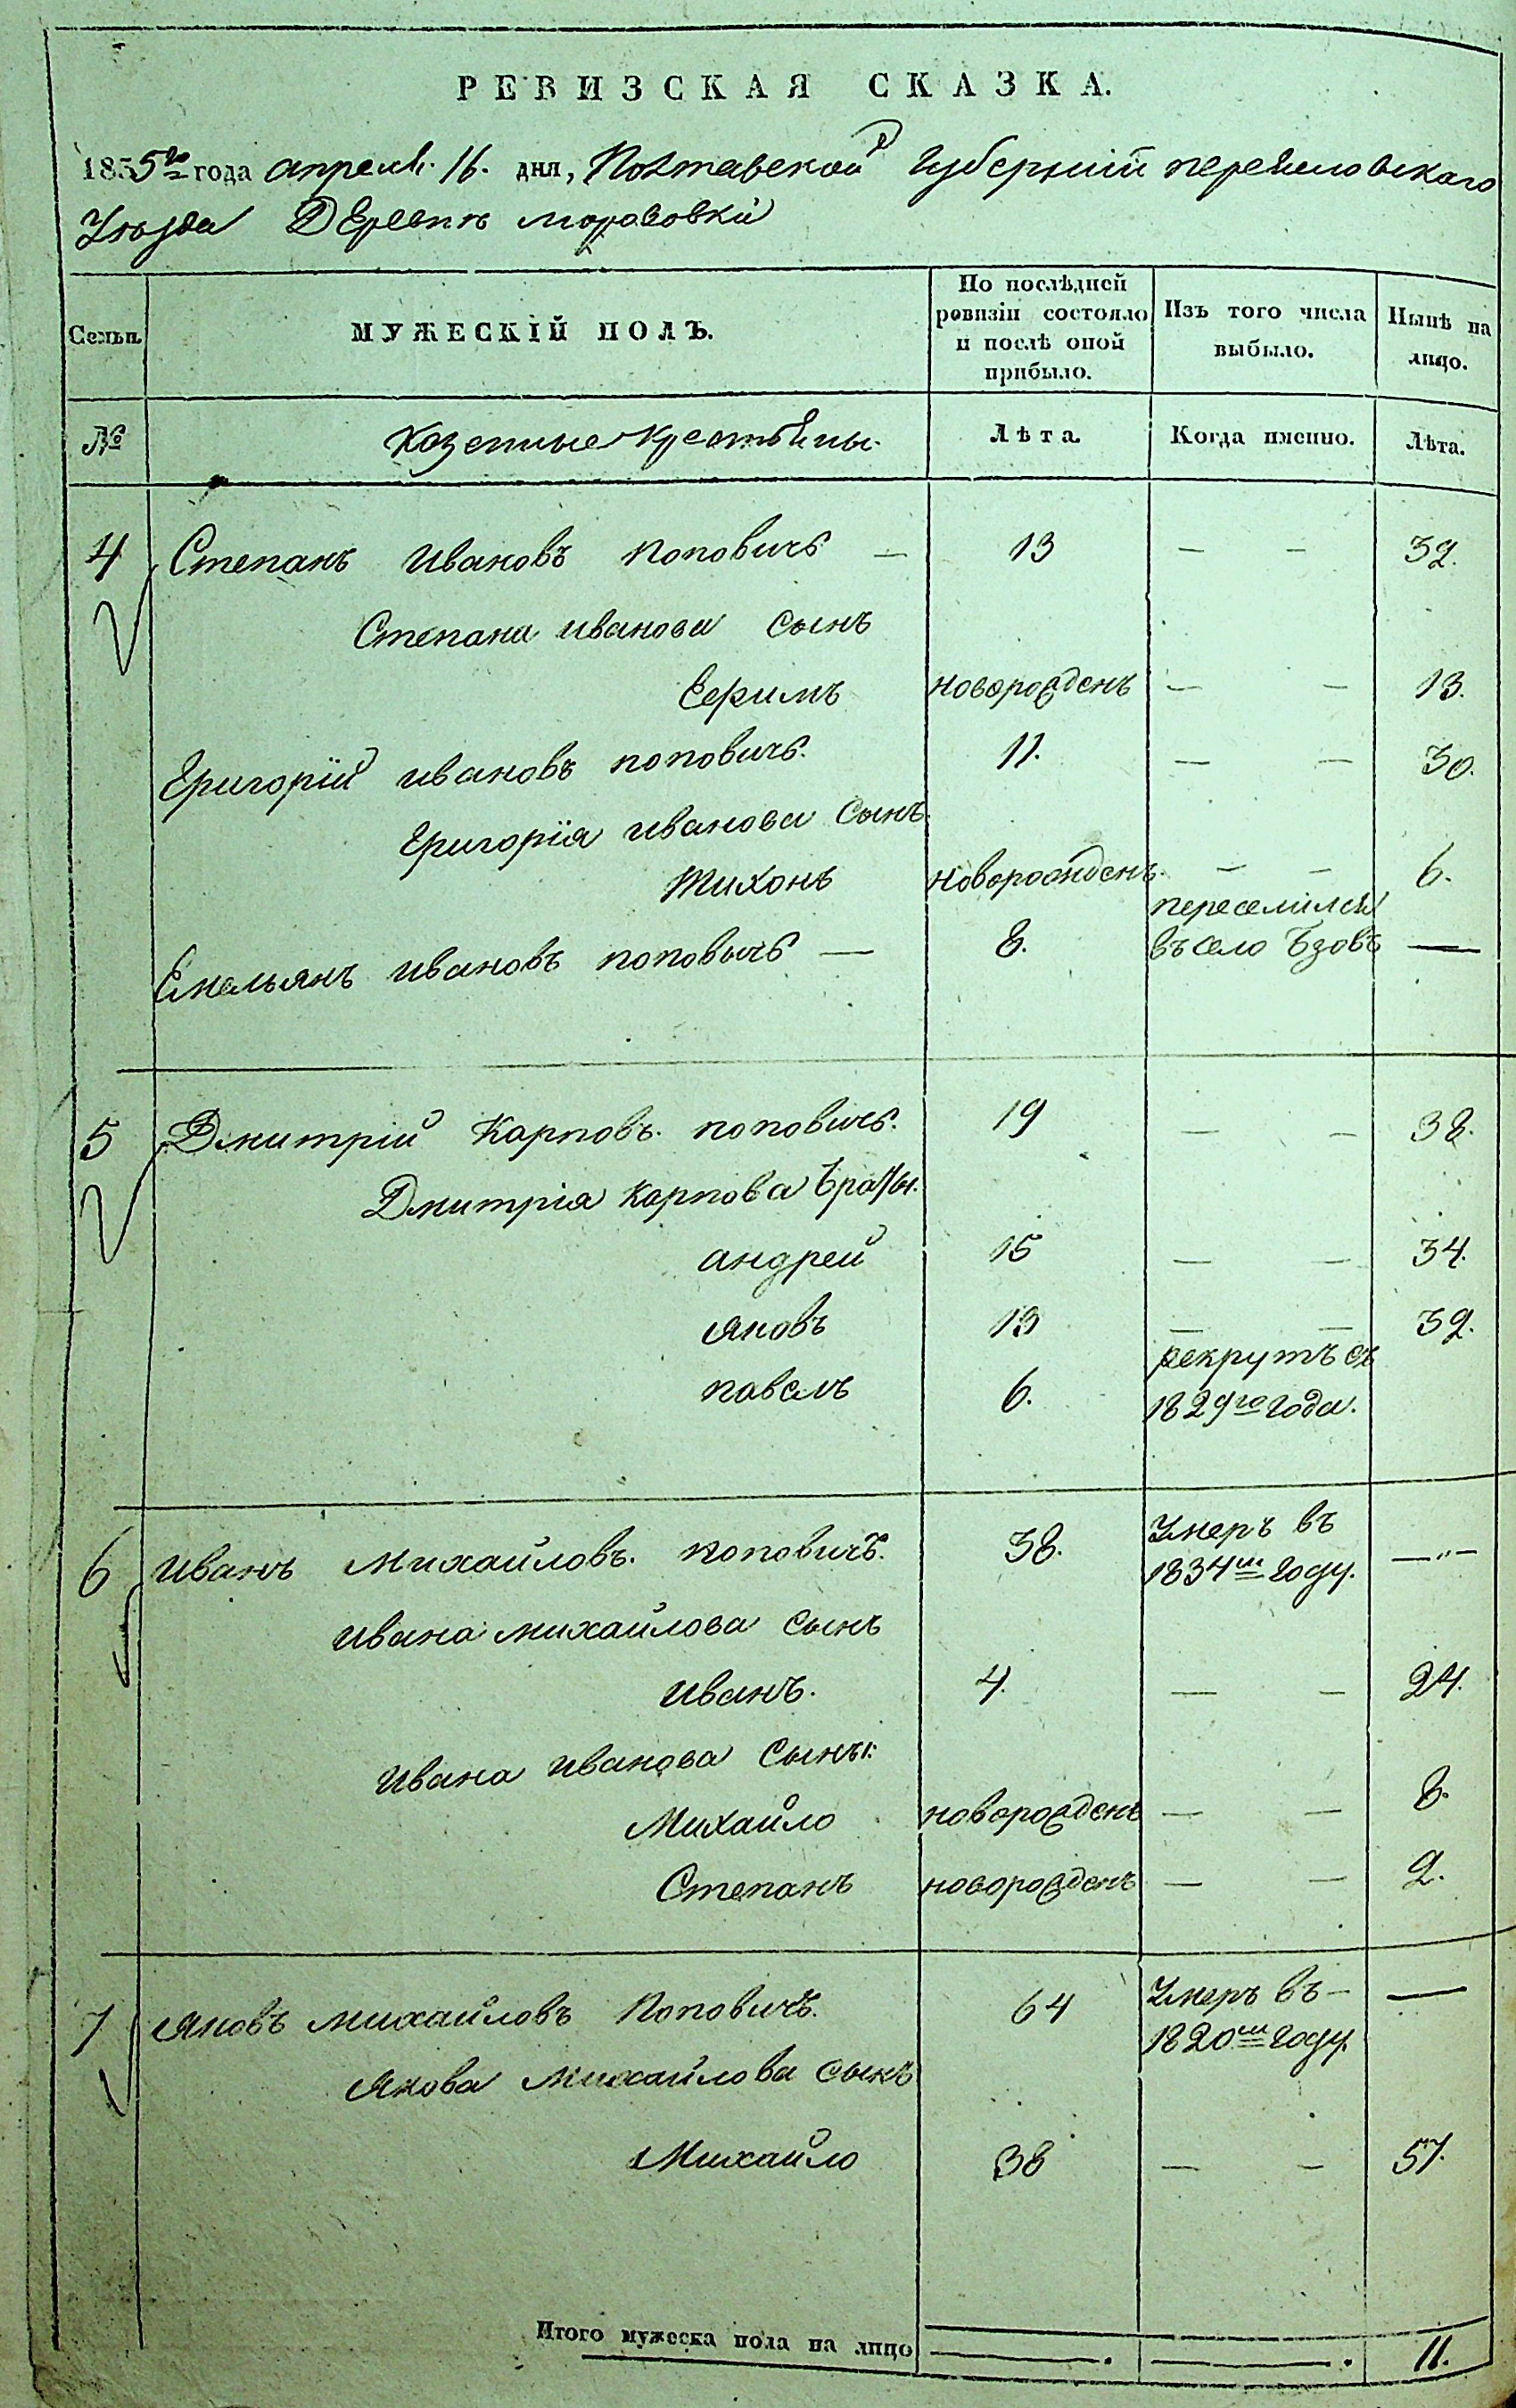 РЕВИЗСКАЯ СКАЗКА.
1835го года апреля 16. дня, Полтавской Губерніи переясловскаго
Уѣзда Деревнѣ
Семьи.
МУЖЕСКІЙ ПОЛЪ.
По послѣдней
ревизіи состояло
и послѣ оной
прибыло.
Изъ того числа
выбыло.
Нынѣ на
лицо.
№
Козенные крестьяны.
Лѣта.
Когда именно.
Лѣта.
4 Степанъ Ивановъ поповичъ — 13 — — 32.
Степана иванова сынъ
Ефимъ новорожденъ — — 13.
Григорїй ивановъ поповичъ. 11. — — 30.
Григорїя иванова сынъ.
Тихонъ новорожденъ. — — 6.
Емельянъ ивановъ поповичъ — 8. переселился
въ село —
5 Дмитрій Карповъ. поповичъ. 19 — — 38.
Дмитрія карпова браты.
андрей 15 — — 34.
яковъ 13 — — 32.
павелъ 6. рекрутъ съ
1829го года.
6 иванъ михайловъ. поповичъ. 38. Умеръ въ
1834м году. —„—
ивана михайлова сынъ
иванъ. 4. — — 24.
ивана иванова сыны:
Михайло новорожденъ — — 8.
Степанъ новорожденъ — — 2.
7 яковъ михайловъ поповичъ. 64 Умеръ въ —
1820м году. —
якова михайлова сынъ
Михайло 38 — — 57.
Итого мужеска пола на лицо — . — . 11.